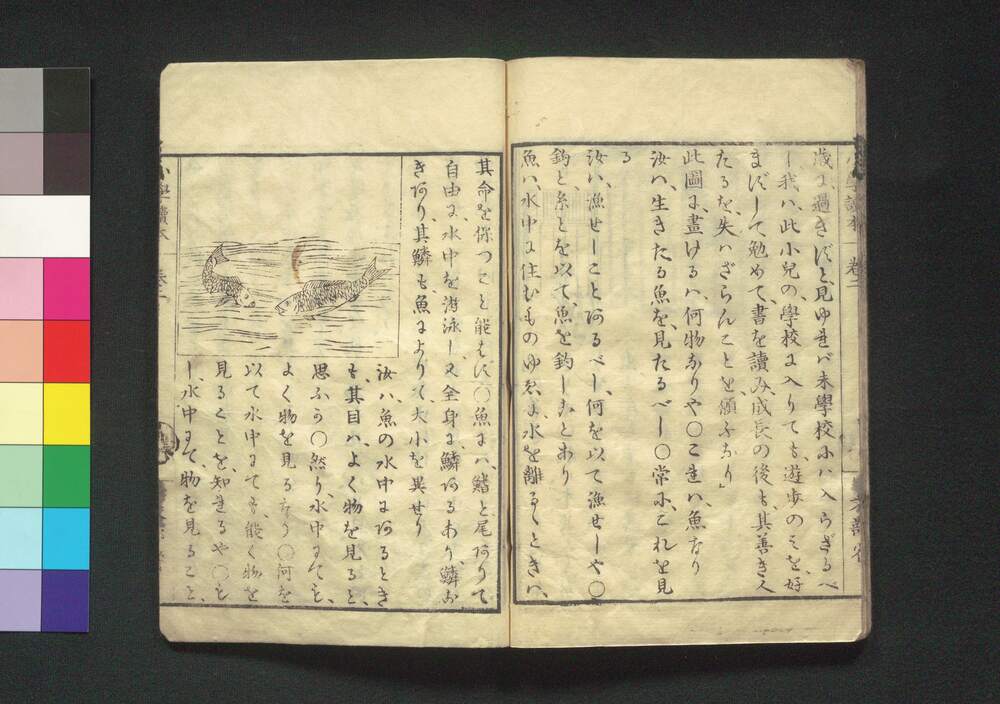 歳に過きずと見ゆれバ未學校にハ入らざるべ
し我ハ此小兒の、學校に入りても、遊歩のミを、好
まずして勉めて、書を讀み成長の後も、其善き人
たるを、失ハざらんことを願ふなり」
此圖に、畫けるハ、何物なりや〇これハ、魚なり
汝ハ、生きたる魚を、見たるべし〇常に、これを見
る
汝ハ、漁せしことあるべし、何を以て漁せしや〇
鈎と、糸とを以て、魚を釣しことあり
魚ハ、水中に住むものゆゑに水を離るゝときハ、
其命を保つこと能はず〇魚にハ、鰭と尾ありて
自由に、水中を游泳し又全身に、鱗あるあり、鱗な
きあり、其鱗も魚によりて、大小を異せり
汝ハ、魚の水中にあるとき
も、其目ハ、よく物を見ると、
思ふか〇然り、水中にても、
よく物を見るなり〇何を
以て水中にても、能く物を
見ることを、知れるや〇も
し、水中にて、物を見ること、
小學讀本 卷一